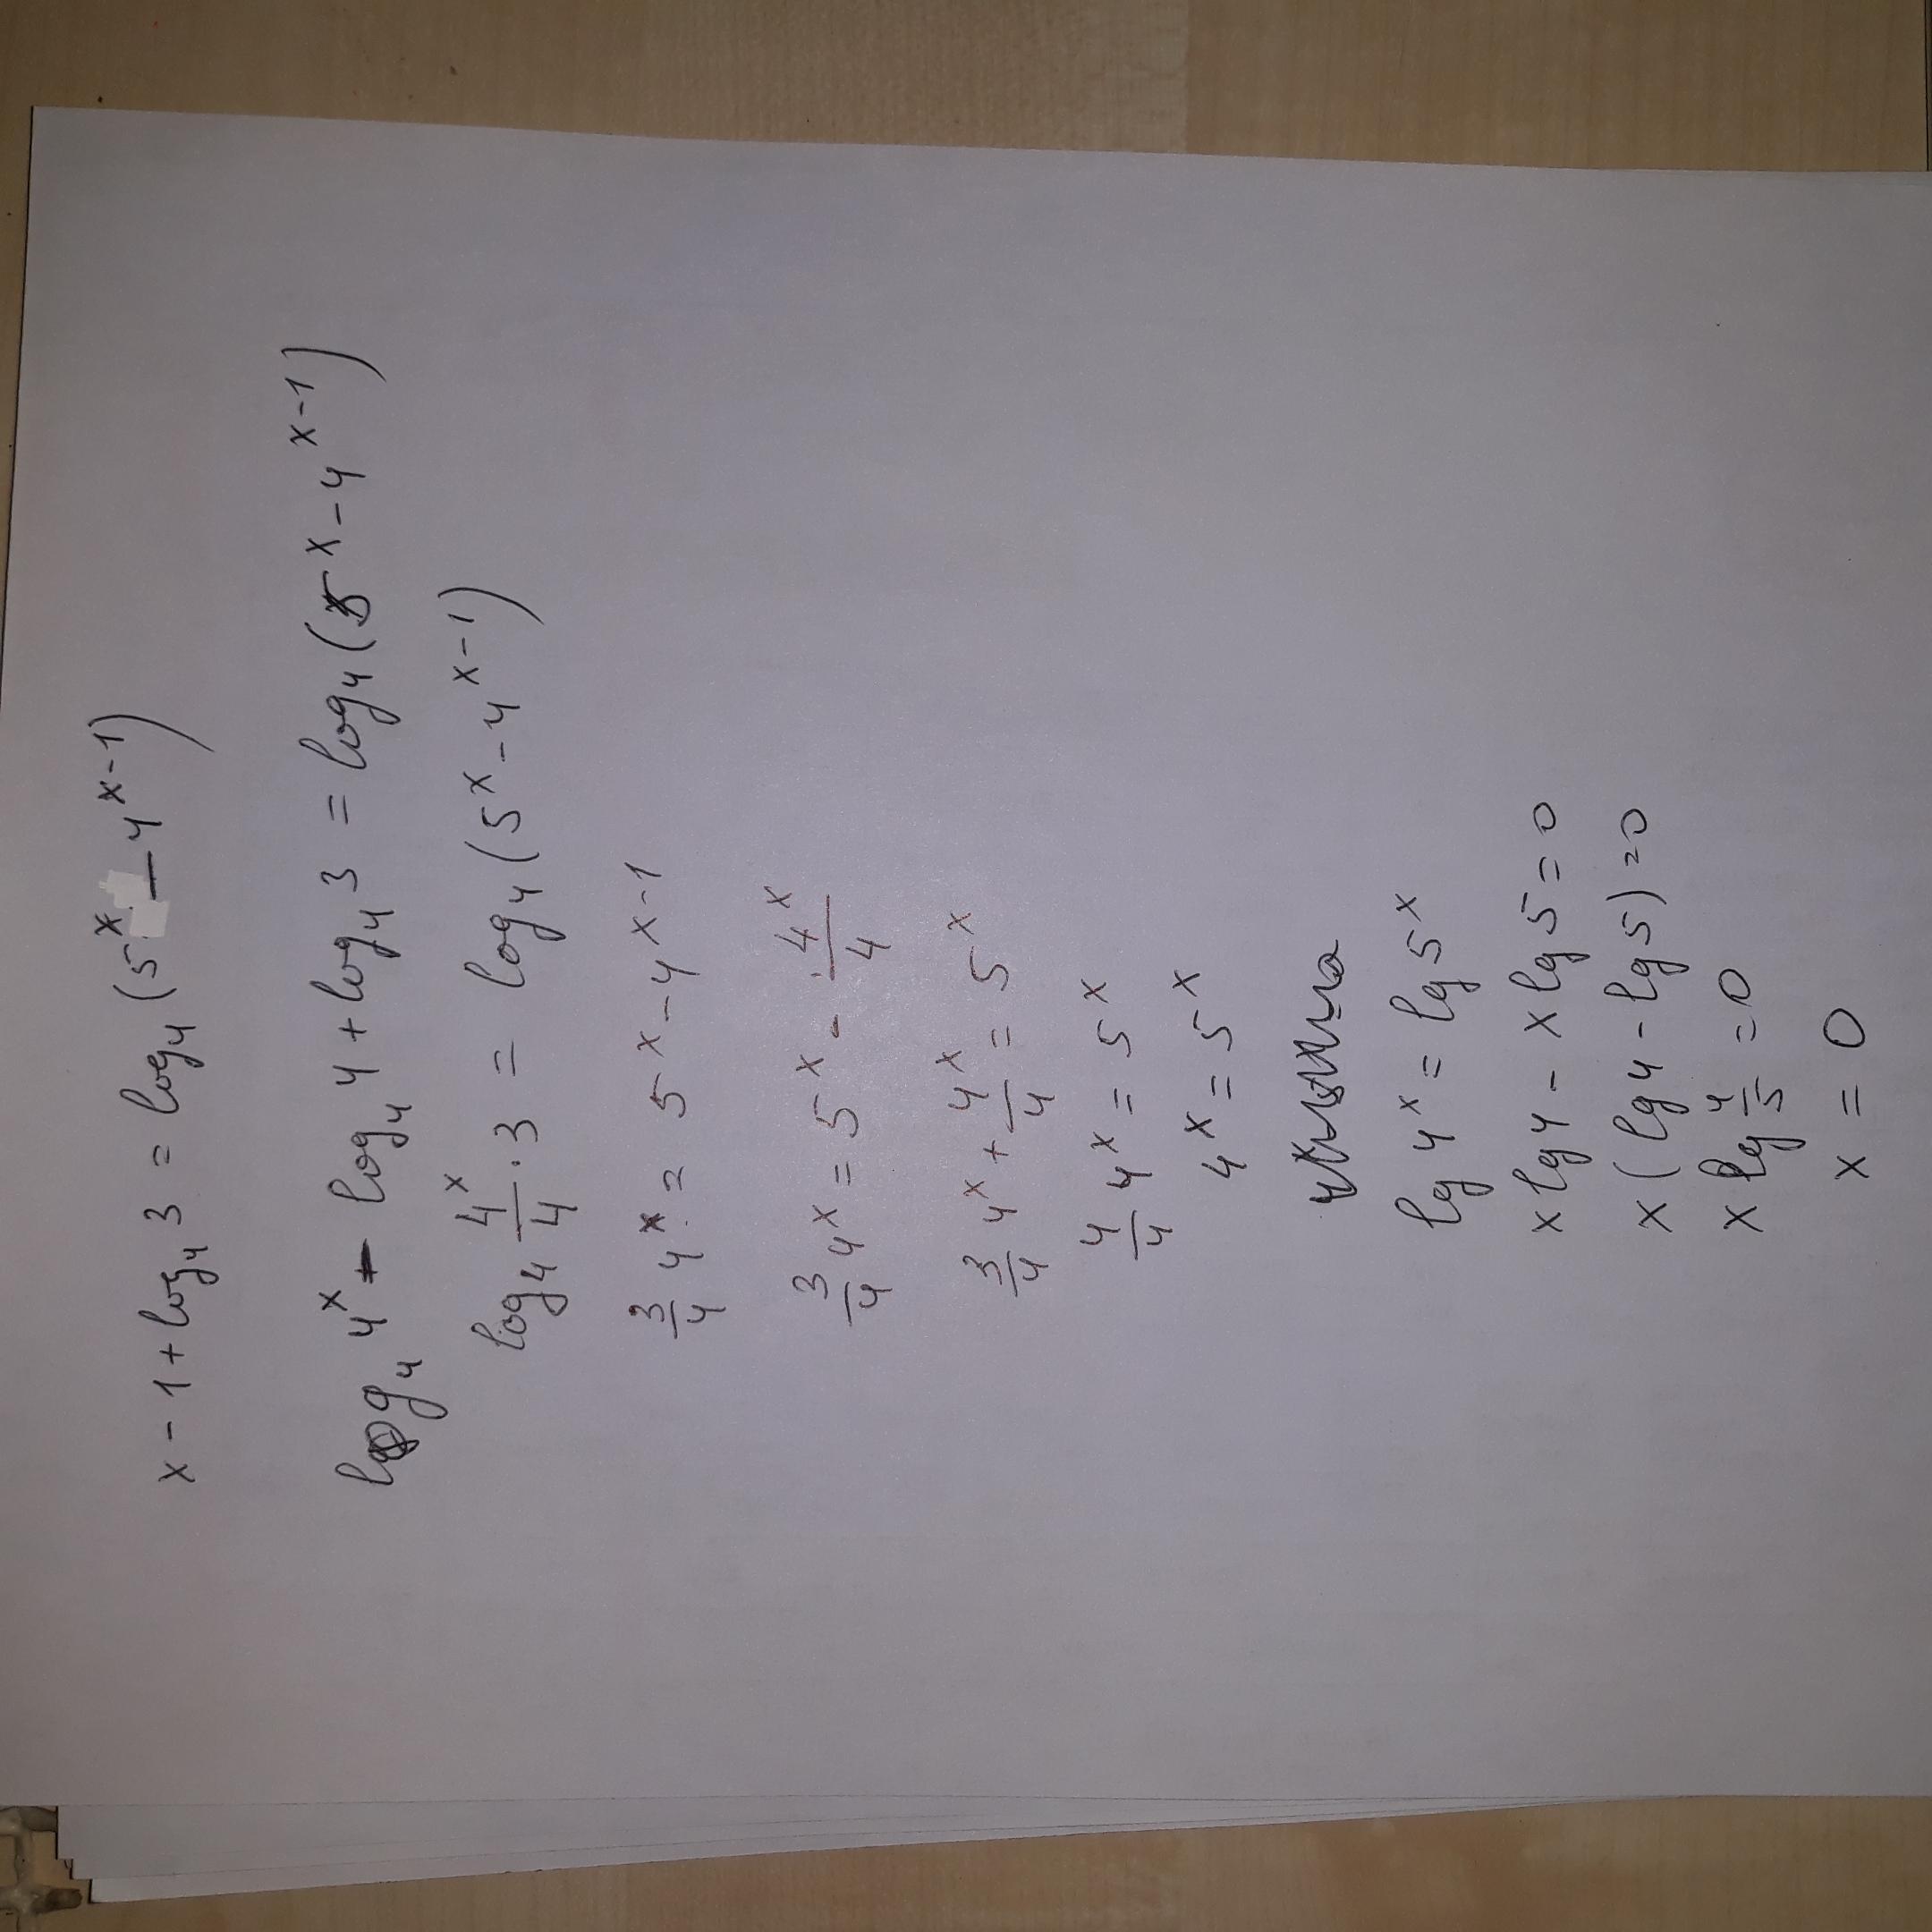 x - 1 + log₄ 3 = log₄ (5ˣ - 4ˣ⁻¹)
log₄ 4ˣ - log₄ 4 + log₄ 3 = log₄ (5ˣ - 4ˣ⁻¹)
log₄ 4ˣ/4 · 3 = log₄ (5ˣ - 4ˣ⁻¹)
3/4 4ˣ = 5ˣ - 4ˣ⁻¹
3/4 4ˣ = 5ˣ - 4ˣ/4
3/4 4ˣ + 4ˣ/4 = 5ˣ
4/4 4ˣ = 5ˣ
4ˣ = 5ˣ
lg 4ˣ = lg 5ˣ
x lg 4 - x lg 5 = 0
x (lg 4 - lg 5) = 0
x lg 4/5 = 0
x = 0